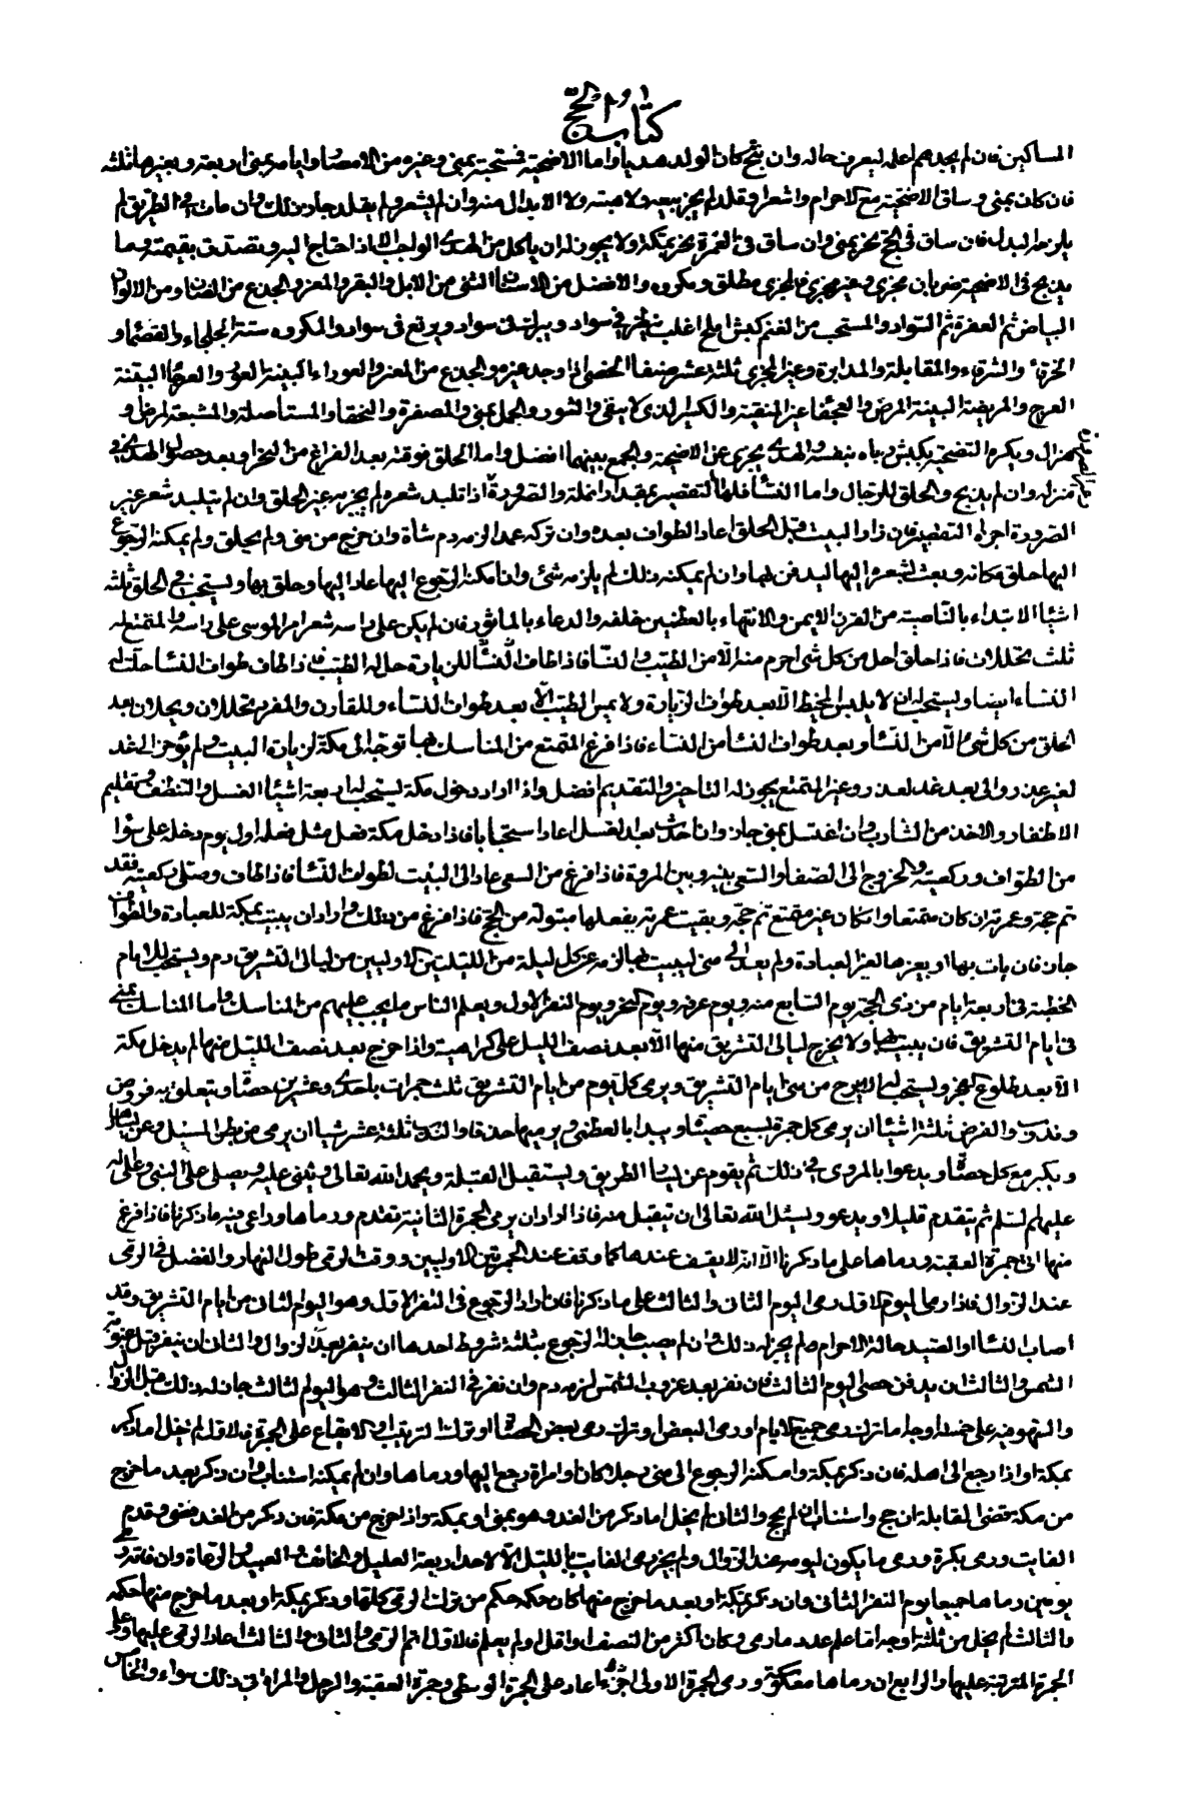 كتاب الحج
المساكين فان لم يجدهم اعلمه ليعرف حاله وان نتج كان الولد هديا واما الاضحية فستحبة بمنى وغيره من الامصار وايامه بمنى اربعة وبغيرها ثلثة
فان كان بمنى وساق الاضحية مع الاحرام واشعر او قلد لم يجز بيعه ولا هبته ولا الابدال منه وان لم يشعر ولم يقلد جاز ذلك وان مات في الطريق لم
يلزمه البدل فان ساق في الحج نحر بمنى وان ساق في العمرة نحر بمكة ولا يجوز له ان ياكل من الهدى الواجب الا اذا احتاج اليه وتصدق بقيمته وما
يذبح في الاضحية ضربان مجزى وغير مجزى فالمجزى مطلق ومكروه والافضل من الاسنان الثنى من الابل والبقر والمعز والجذع من الضان ومن الالوان
البياض ثم العفرة ثم السواد والمستحب من الغنم كبش املح اقلب ينظر في سواد ويبرك في سواد ويرتع في سواد والمكروه ستة الجلحاء والقصماء و
الخرقاء والشرقاء والمقابلة والمدابرة وغير المجزى ثلثة عشر صنفا الخصى اذا وجد غيره والجذع من المعز والعوراء البينة العور والعرجاء البينة
العرج والمريضة البينة المرض والعجفاء غير المنقية والكسير الذى لا ينقى والثور والجمل بمنى والمصفرة والبخقاء والمستاصلة والمشيعة لمرض او
هزال ويكره التضحية بكبش رباه بنفسه والهدى يجزى عن الاضحية والجمع بينهما افضل واما الحلق فوقته بعد الفراغ من النحر او بعد حصول الهدى في
منزله وان لم يذبح والحلق للرجال واما النساء فلها التقصير بمقدار انملة والضرورة اذا تلبد شعره لم يجزيه غير الحلق وان لم يتلبد شعر غير
الصرورة اجزاه التقصير فان زار البيت قبل الحلق اعاد الطواف بعده وان تركه عمدا لزمه دم شاة وان خرج من منى ولم يحلق ولم يمكنه الرجوع
اليها حلق مكانه وبعث بشعره اليها ليدفن بها وان لم يمكنه ذلك لم يلزمه شئ وان امكنه الرجوع اليها عاد اليها وحلق بها ويستحب في الحلق ثلثة
اشياء الابتداء بالناصية من القرن الايمن والانتهاء بالعظمين خلفه والدعاء بالماثور فان لم يكن على راسه شعر امر الموسى على راسه والمتمتع له
ثلث تحللات فاذا حلق احل من كل شئ احرم منه الا من الطيب والنساء فاذا طاف للزيارة حل له الطيب فاذا طاف طواف النساء حلت له
النساء ايضا ويستحب له ان لا يلبس المخيط الا بعد طواف الزيارة ولا يمس الطيب الا بعد طواف النساء وللقارن والمفرد تحللان ويحلان بعد
الحلق من كل شئ الا من النساء وبعد طواف النساء من النساء فاذا فرغ المتمتع من المناسك بها توجه الى مكة لزيارة البيت ولم يؤخر الى غد
لغير عذر والى بعد غد لعذر وغير المتمتع يجوز له التاخير والتقديم افضل واذا اراد دخول مكة يستحب له اربعة اشياء الغسل والتنظف وتقليم
الاظفار والاخذ من الشارب وان اغتسل بمنى جاز وان احدث بعد الغسل اعاد استحبابا فاذا دخل مكة فعل مثل فعله اول يوم دخله على سواء
من الطواف وركعتيه والخروج الى الصفا والسعى بينه وبين المروة فاذا فرغ من السعى عاد الى البيت لطواف النساء فاذا طاف وصلى ركعتيه فقد
تم حجه وعمرته ان كان متمتعا وان كان غير متمتع تم حجه وبقيت عمرته يفعلها مبتولة من الحج فاذا فرغ من ذلك واراد ان يبيت بمكة للعبادة والطواف
جاز فان بات بها او بغيرها لغير العبادة ولم يعد الى منى ليبيت بها لزمه عن كل ليلة من الليلتين الاوليين من ليالى التشريق دم ويستحب للامام
الخطبة في اربعة ايام من ذى الحجة يوم السابع منه ويوم عرفة ويوم النحر ويوم النفر الاول ويعلم الناس ما يجب عليهم من المناسك واما المناسك بمنى
في ايام التشريق فان يبيت بها ولا يخرج ليالى التشريق منها الا بعد نصف الليل على كراهية واذا خرج بعد نصف الليل منها لم يدخل مكة
الا بعد طلوع الفجر ويستحب له الا يبرح من منى ايام التشريق ويرمى كل يوم من ايام التشريق ثلث جمرات باحدى وعشرين حصاة ويتعلق به فروض
وندوب والفرض ثلثة اشياء ان يرمى كل جمرة بسبع حصيات ويبدا بالعظمى ويرميها حذفا والندب ثلثة عشر شيئا ان يرمى من بطن المسيل وعن يسارها
ويكبر مع كل حصاة ويدعوا بالمروى في ذلك ثم يقوم عن يسار الطريق ويستقبل القبلة ويحمد الله تعالى ويثنى عليه ويصلى على النبى وعلى اله
عليهم السلم ثم يتقدم قليلا ويدعو ويسئل الله تعالى ان يتقبل منه فاذا اراد ان يرمى الجمرة الثانية تقدم ورماها وراعى فيه ما ذكرنا فاذا فرغ
منها اتى جمرة العقبة ورماها على ما ذكرنا الا انه لا يقف عندها كما وقف عند الجمرتين الاوليين ووقت الرمى طول النهار والفضل في الرمى
عند الزوال فاذا رمى اليوم الاول رمى اليوم الثانى والثالث على ما ذكرنا فان اراد الرجوع في النفر الاول وهو اليوم الثانى من ايام التشريق وقد
اصاب النساء او الصيد حالة الاحرام لم يجز له ذلك وان لم يصب جاز له الرجوع بثلثة شروط احدها ان ينفر بعد الزوال والثانى ان ينفر قبل غيبوبة
الشمس والثالث ان يدفن حصى اليوم الثالث فان نفر بعد غروب الشمس لزمه دم وان نفر في النفر الثالث وهو اليوم الثالث جاز له ذلك قبل الزوال
والسهو فيه على خمسة اوجه اما ترك رمى جميع الايام او رمى البعض او ترك رمى بعض الحصاة او ترك الترتيب او الايقاع على الجمرة فالاول لم يخل اما ذكر
بمكة او اذا رجع الى اهله فان ذكر بمكة وامكنه الرجوع الى منى رجلا كان او امراة رجع اليها ورماها وان لم يمكنه استناب وان ذكر بعد ما خرج
من مكة قضى القابلة ان حج واستناب ان لم يحج والثانى لم يخل اما ذكر من الغد وهو بمنى او بمكة او اذا خرج من مكة فان ذكر من الغد قضى وقدم
الفايت ورمى بكرة ورمى ما يكون ليومه عند الزوال ولم يجز رمى الفايت بالليل الا لاحد اربعة العليل والخائف والعبيد والرعاة وان فاته رمى
يومين رماها جميعا يوم النفر الثانى وان ذكر بمكة او بعد ما خرج منها كان حكمه حكم من ترك الرمى كلها وذكر بمكة او بعد ما خرج منها حكمه
والثالث لم يخل من ثلثة اوجه اما علم عدد ما رمى وكان اكثر من النصف او اقل او لم يعلم فالاول اتم الرمى والثانى والثالث اعاد الرمى عليها وعلى
الجمرة المترتبة عليها والرابع ان رماها معكوسة ورمى الجمرة الاولى اجزء اعاد على الجمرة الوسطى وجمرة العقبة والرجل والمراة في ذلك سواء والخامس